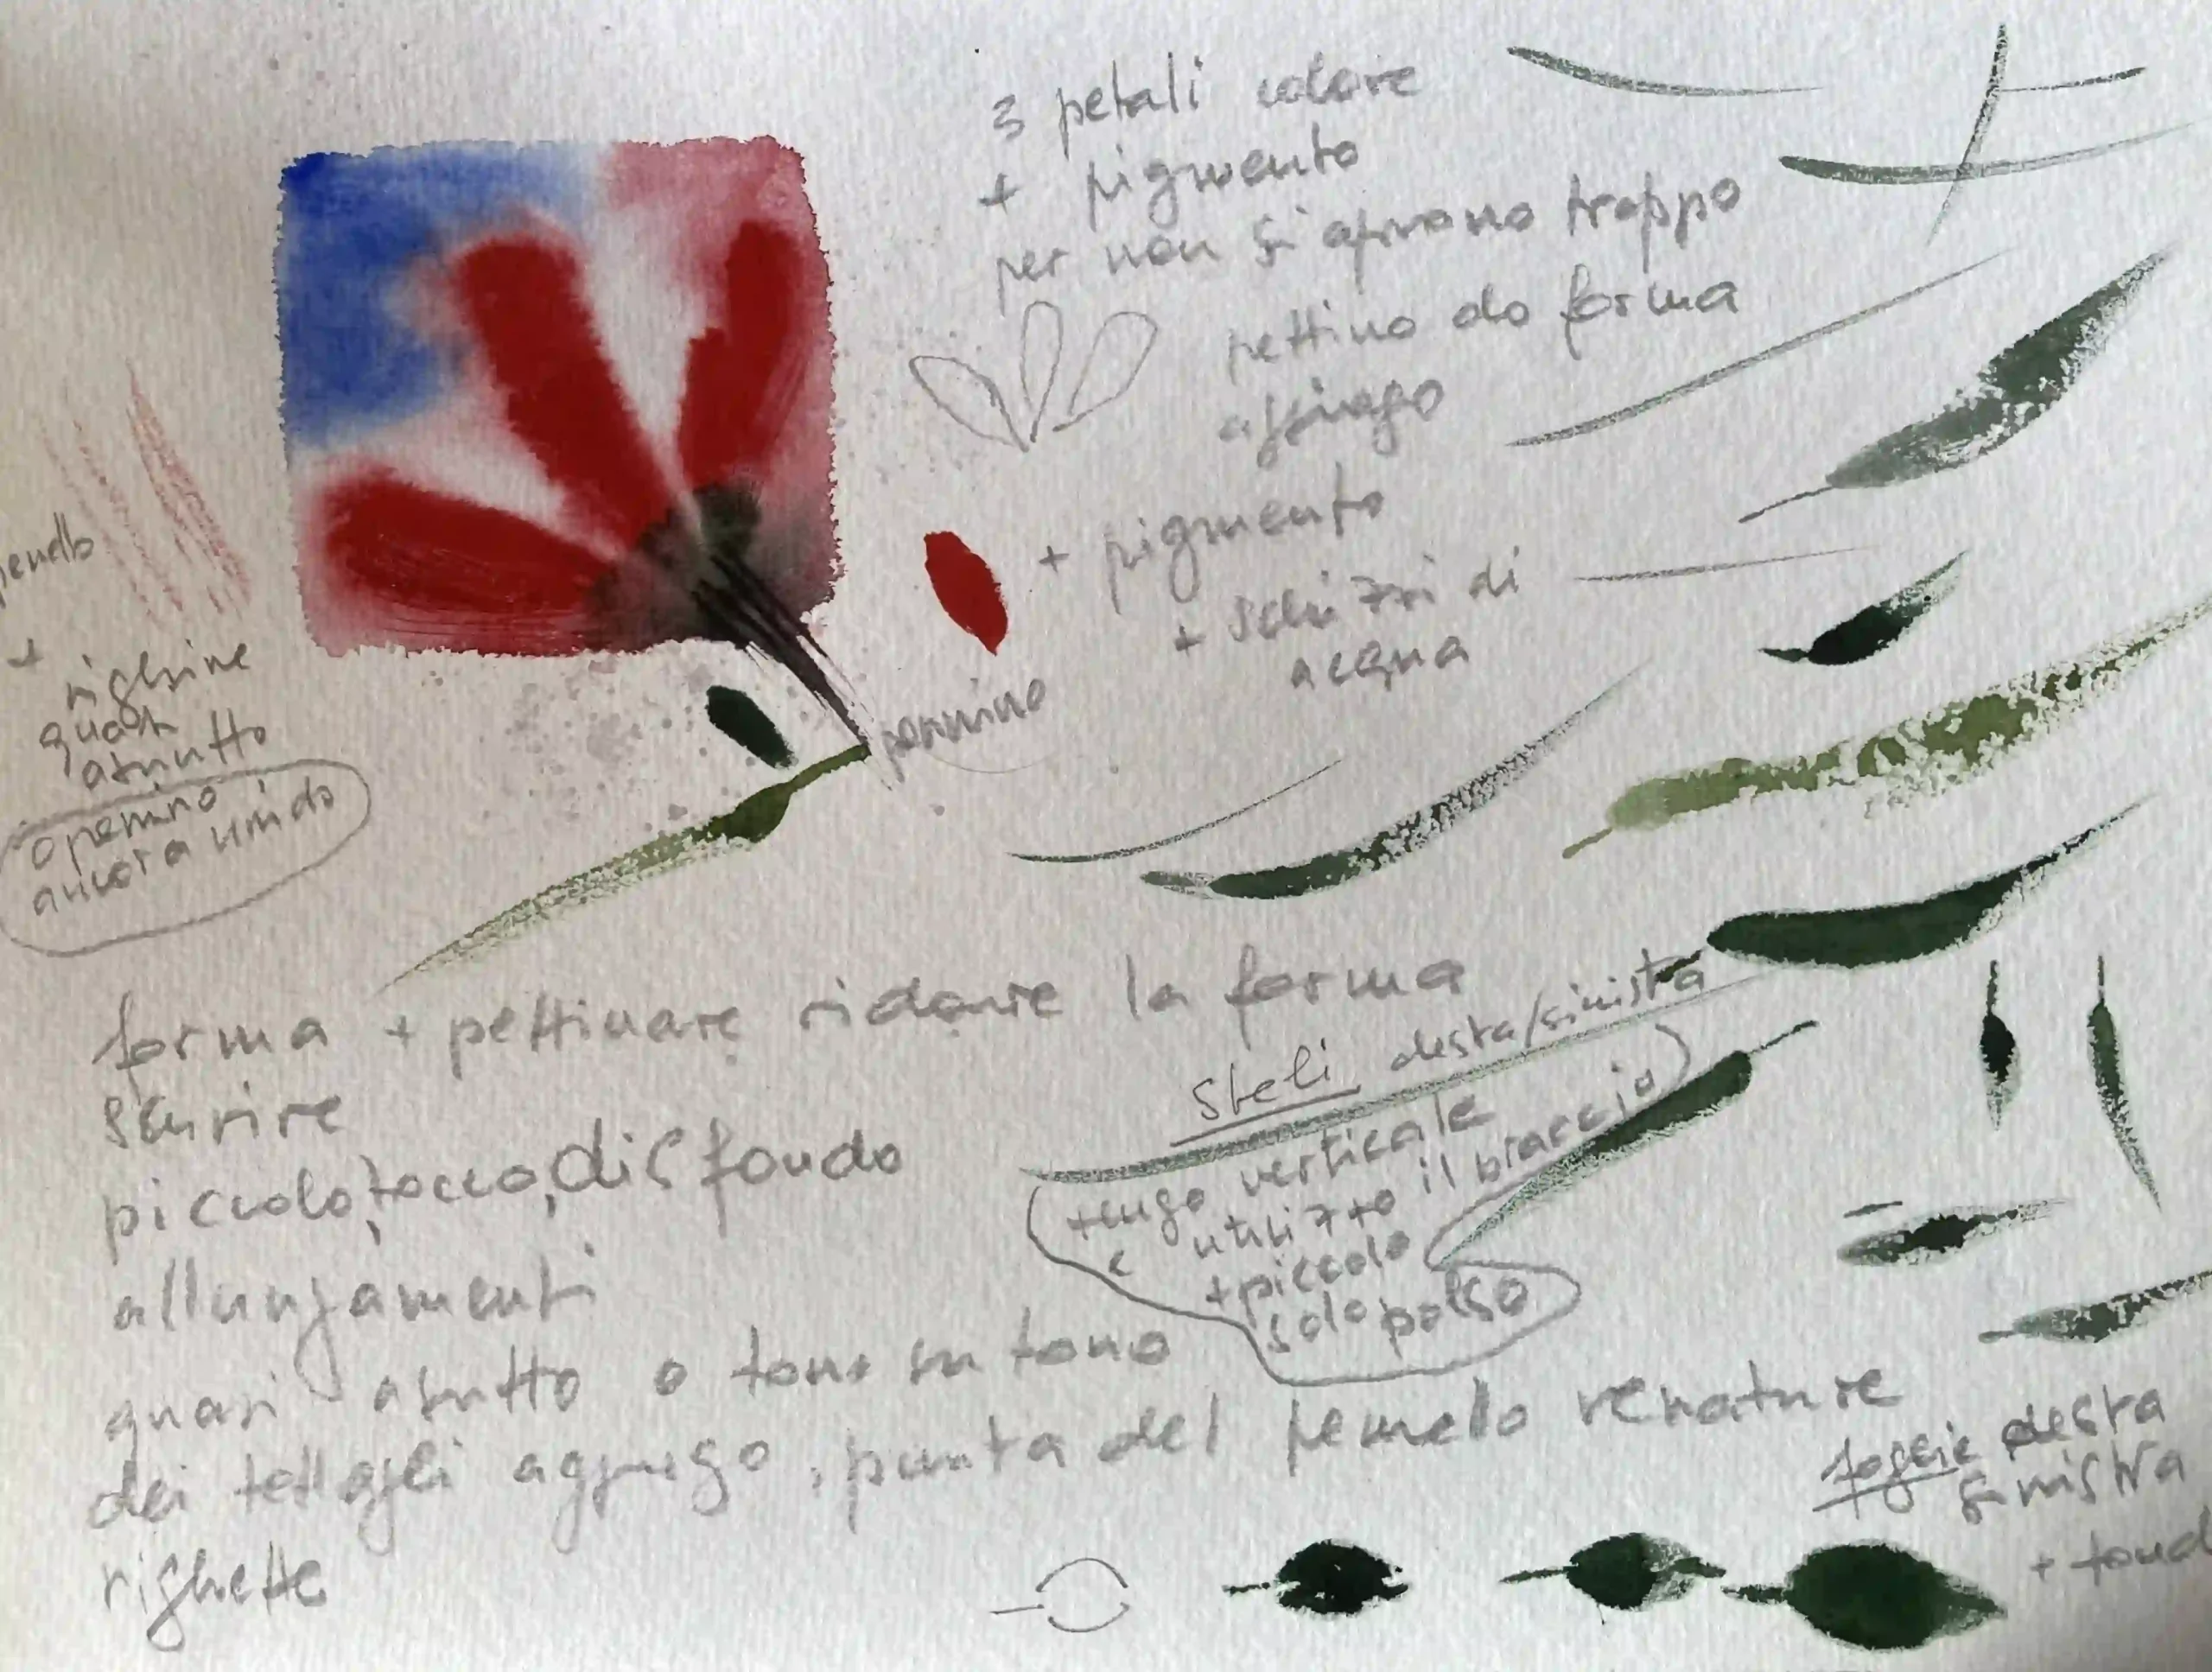 3 petali colore
+ pigmento
per non si aprano troppo
pettino do forma
affingo
+ pigmento
+ schizzi di
acqua
pennino
penello
+ righine
quasi
asciutto
o pennino
ancora umido
forma + pettinare ridare la forma
scurire
piccolo, tocco, di sfondo
allungamenti
quasi asutto o tono su tono
dei tettagli aggiungo, punta del pennello venature
righette
Steli desta/sinista
+ lungo verticale
utilizzo il braccio
+ piccolo
solo polso
foglie desta
sinistra
+ tond